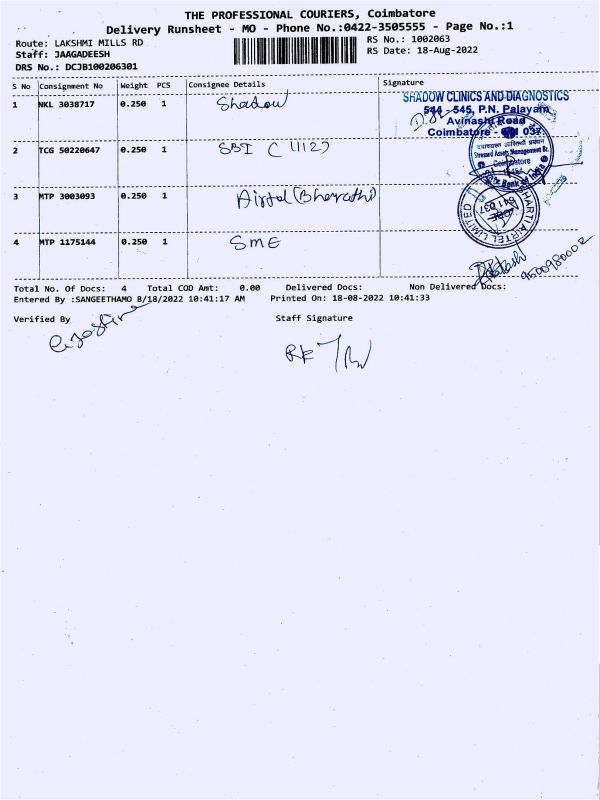 THE PROFESSIONAL COURIERS, Coimbatore
Delivery Runsheet - MO - Phone No.:0422-3505555 - Page No.:1
Route: LAKSHMI MILLS RD
RS No.: 1002063
Staff: JAAGADEESH
RS Date: 18-Aug-2022
DRS No.: DCJB100206301
S No Consignment No Weight PCS Consignee Details Signature
1 NKL 3038717 0.250 1 Shadow
SHADOW CLINICS AND DIAGNOSTICS
544 - 545, P.N. Palayam
Avinashi Road
Coimbatore - 641 037
2 TCG 50220647 0.250 1 SBI (1112)
Stressed Assets Management Br.
Coimbatore
3 MTP 3003093 0.250 1 Airtel (Bharathi)
BHARTI AIRTEL LIMITED
641 037
4 MTP 1175144 0.250 1 SME
9500980002
Total No. Of Docs: 4 Total COD Amt: 0.00 Delivered Docs: Non Delivered Docs:
Entered By :SANGEETHAMO 8/18/2022 10:41:17 AM Printed On: 18-08-2022 10:41:33
Verified By Staff Signature